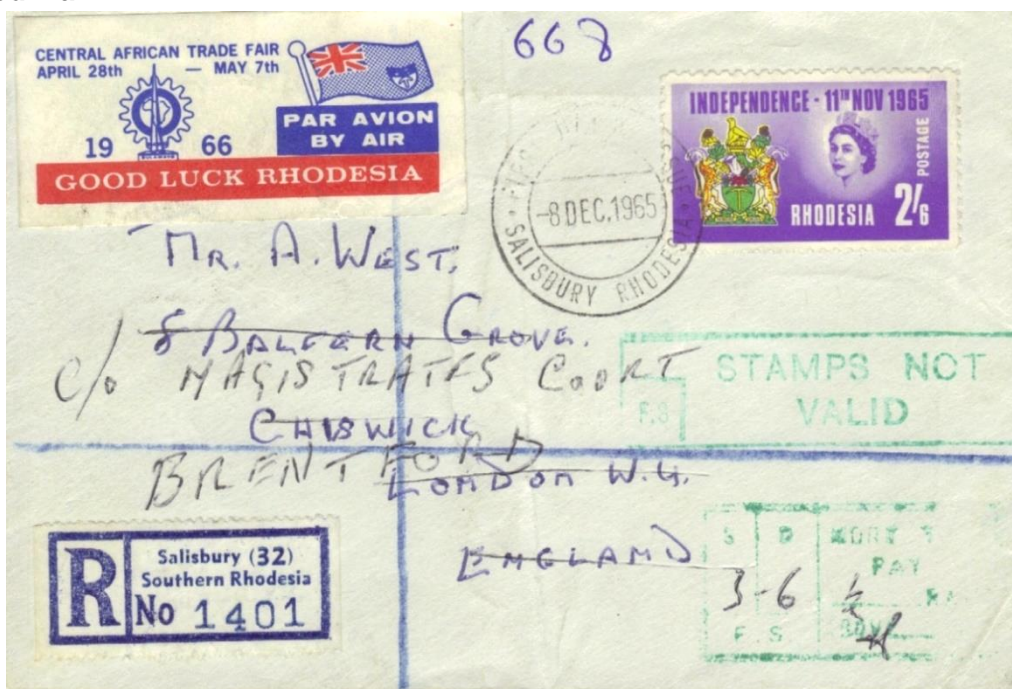 668
CENTRAL AFRICAN TRADE FAIR
APRIL 28th — MAY 7th
19 66
PAR AVION
BY AIR
GOOD LUCK RHODESIA
INDEPENDENCE - 11TH NOV 1965
POSTAGE
RHODESIA 2/6
-8 DEC.1965
SALISBURY RHODESIA
MR. A. WEST.
8 BALFERN GROVE.
c/o MAGISTRATES COORT
CHISWICK
BRENTFORD
LONDON W.4.
ENGLAND
STAMPS NOT
F.S VALID
Salisbury (32)
Southern Rhodesia
R No 1401
S D
PAY
3-6 ½
F.S.